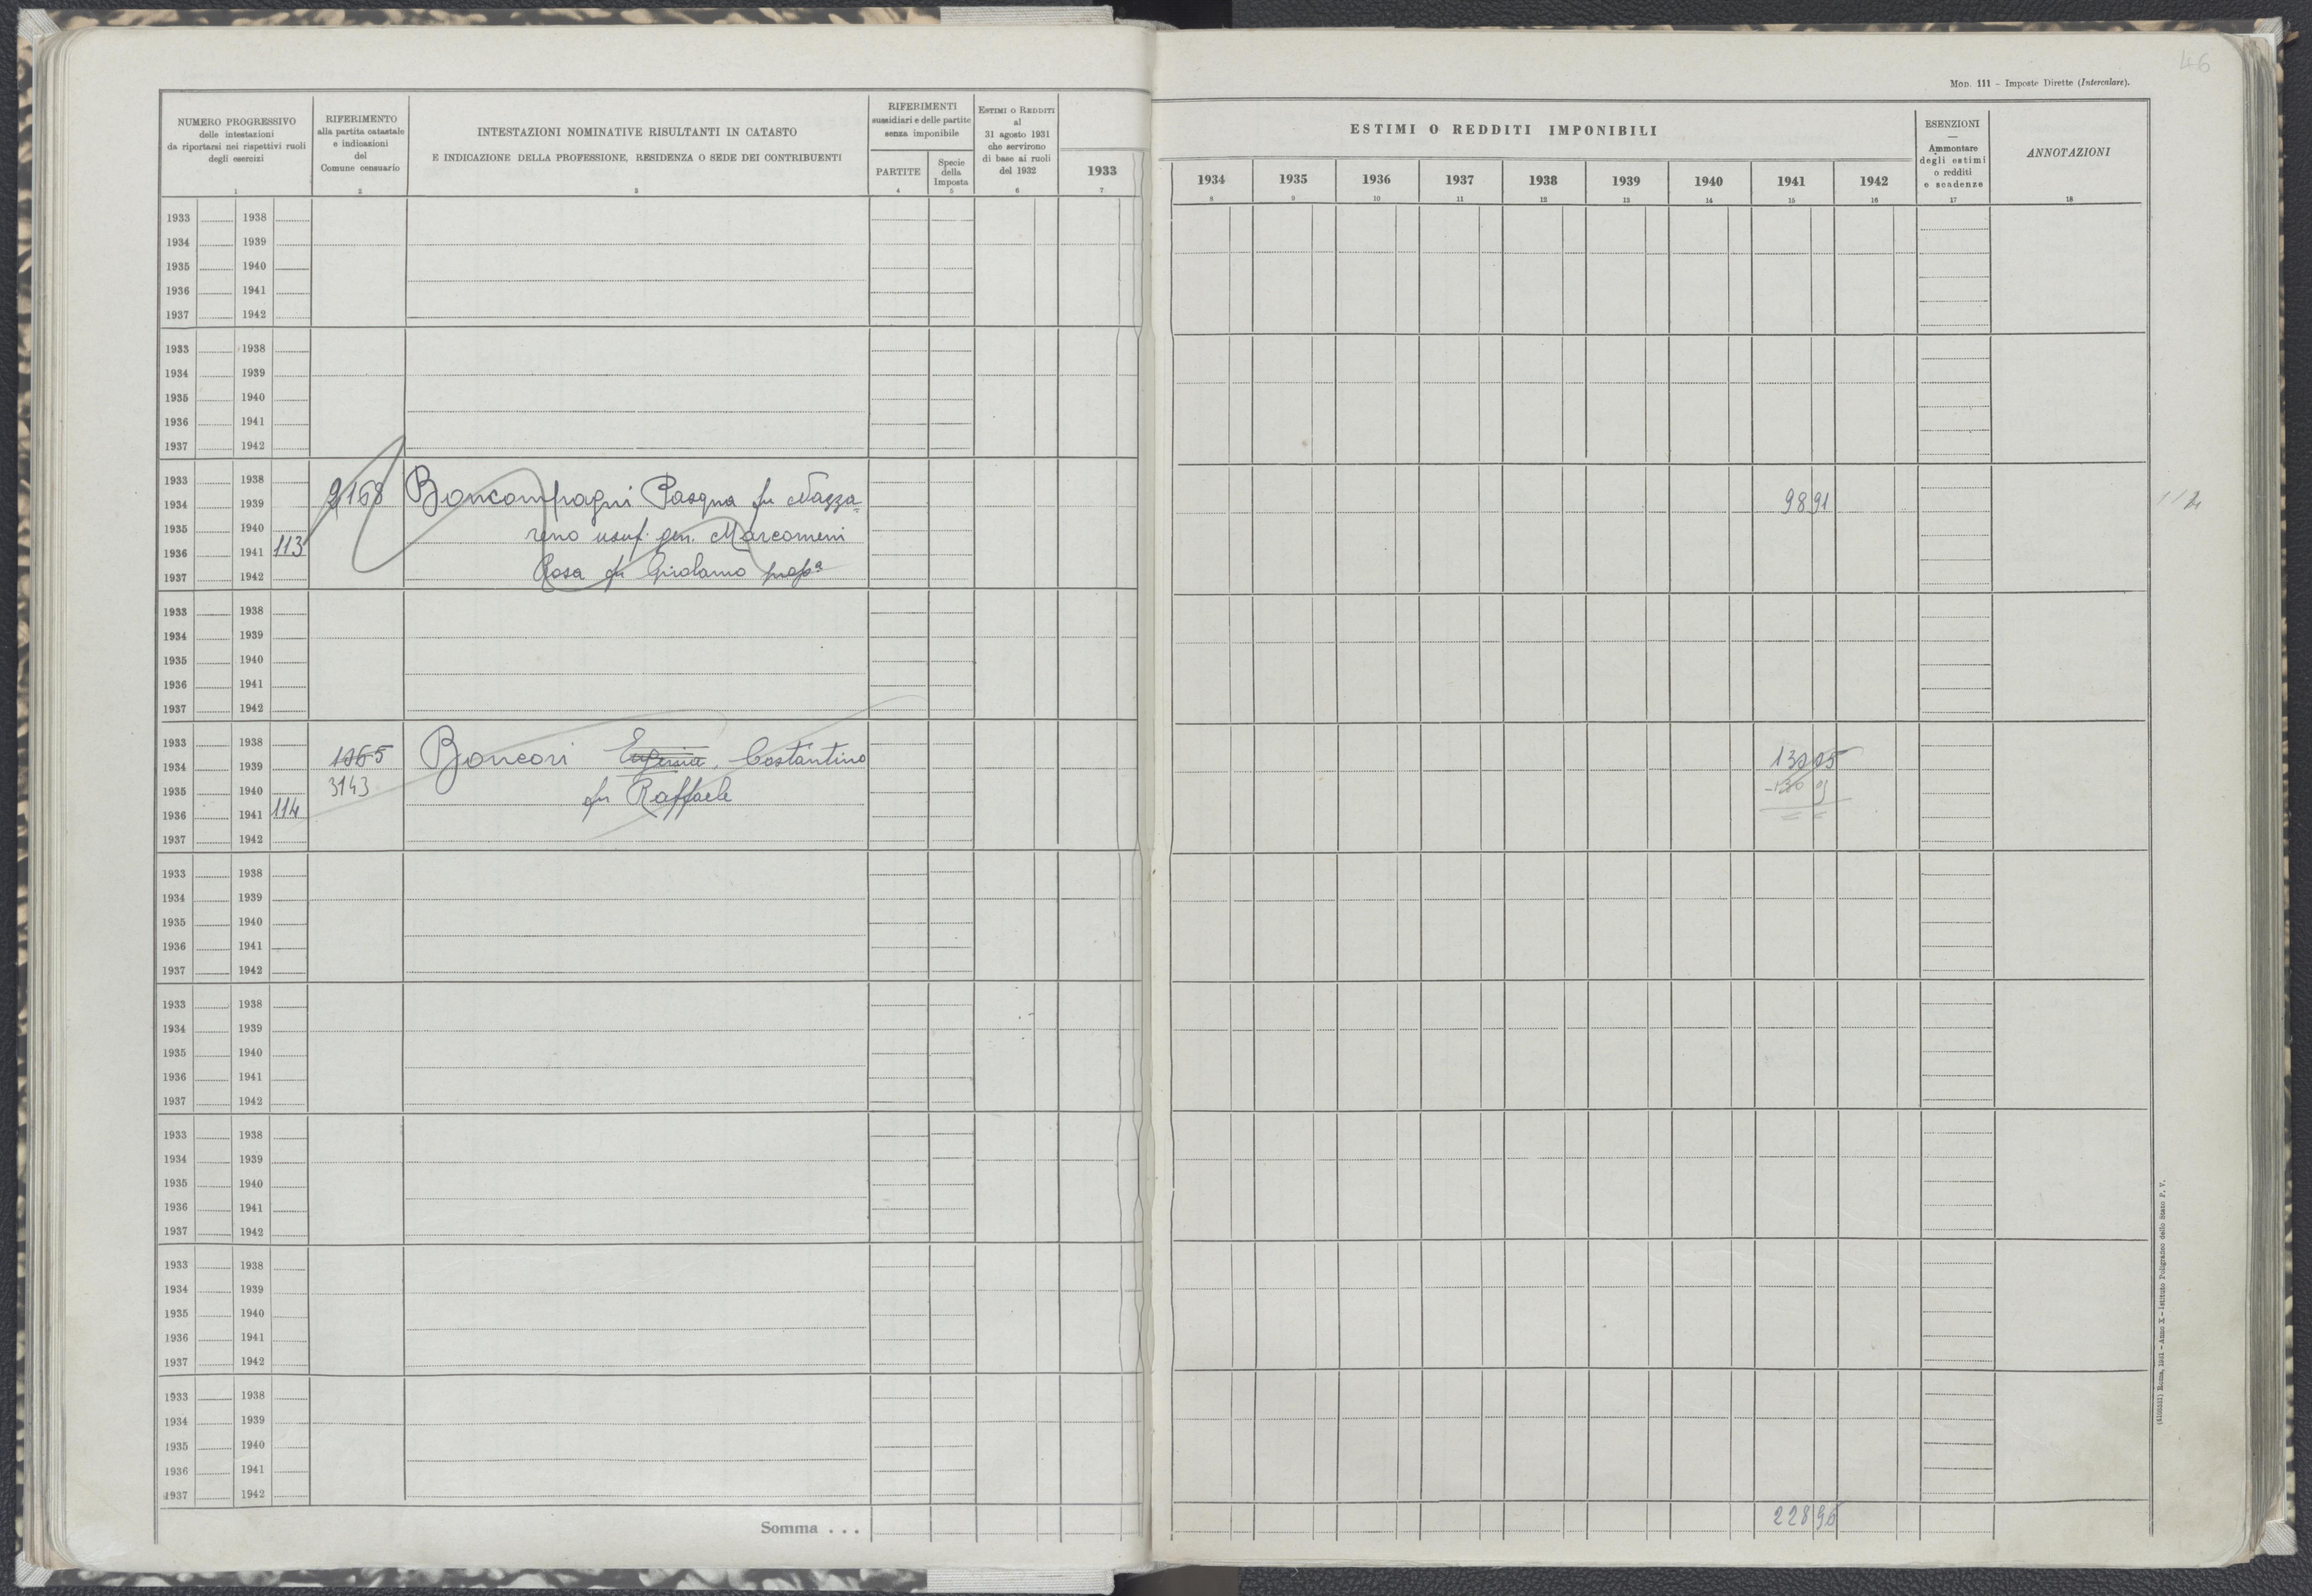 46
Mod. 111 – Imposte Dirette (Intercalare).
NUMERO PROGRESSIVO
delle intestazioni
da riportarsi nei rispettivi ruoli
degli esercizi
1
RIFERIMENTO
alla partita catastale
e indicazioni
del
Comune censuario
2
INTESTAZIONI NOMINATIVE RISULTANTI IN CATASTO
E INDICAZIONE DELLA PROFESSIONE, RESIDENZA O SEDE DEI CONTRIBUENTI
3
RIFERIMENTI
sussidiari e delle partite
senza imponibile
PARTITE
4
Specie
della
Imposta
5
Estimi o Redditi
al
31 agosto 1931
che servirono
di base ai ruoli
del 1932
6
1933
7
ESTIMI O REDDITI IMPONIBILI
1934 1935 1936 1937 1938 1939 1940 1941 1942
8 9 10 11 12 13 14 15 16
ESENZIONI
—
Ammontare
degli estimi
o redditi
e scadenze
17
ANNOTAZIONI
18
1933 1938
1934 1939
1935 1940
1936 1941
1937 1942
1933 1938
1934 1939
1935 1940
1936 1941
1937 1942
1933 1938
1934 1939 2168 Boncompagni Pasqua fu Nazza= 98 91
1935 1940 reno usuf. gen. Marcomeni
1936 1941 113
1937 1942 Rosa fu Girolamo propª
1933 1938
1934 1939
1935 1940
1936 1941
1937 1942
1933 1938
1934 1939 1065 Boncori Costantino 130 05
1935 1940 3143 fu Raffaele
1936 1941 114
1937 1942
1933 1938
1934 1939
1935 1940
1936 1941
1937 1942
1933 1938
1934 1939
1935 1940
1936 1941
1937 1942
1933 1938
1934 1939
1935 1940
1936 1941
1937 1942
1933 1938
1934 1939
1935 1940
1936 1941
1937 1942
1933 1938
1934 1939
1935 1940
1936 1941
1937 1942
Somma . . . 228 96
Roma, 1931 – Anno X – Istituto Poligrafico dello Stato P. V.